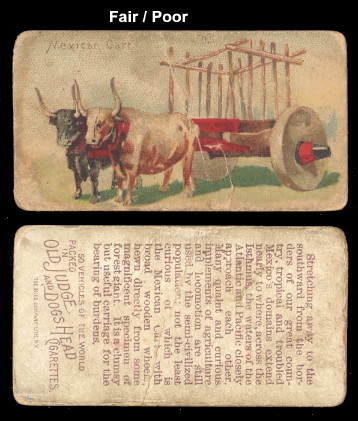 Fair / Poor
Mexican Cart
Stretching away to the
southward from the bor-
ders of our great coun-
try, tropical and troubled
Mexico's domains extend
nearly to where, across the
Isthmus, the waters of the
Atlantic and Pacific closely
approach each other.
Many quaint and curious
implements of agriculture
and locomotion are still
used by the semi-civilized
population; not the least
curious of which is
the Mexican Cart with
broad wooden wheels,
hewn directly from some
magnificent specimen of
forest giant. It is a clumsy
but useful carriage for the
bearing of burdens.
50 VEHICLES OF THE WORLD
PACKED IN
OLD JUDGE
AND DOGS HEAD
CIGARETTES.